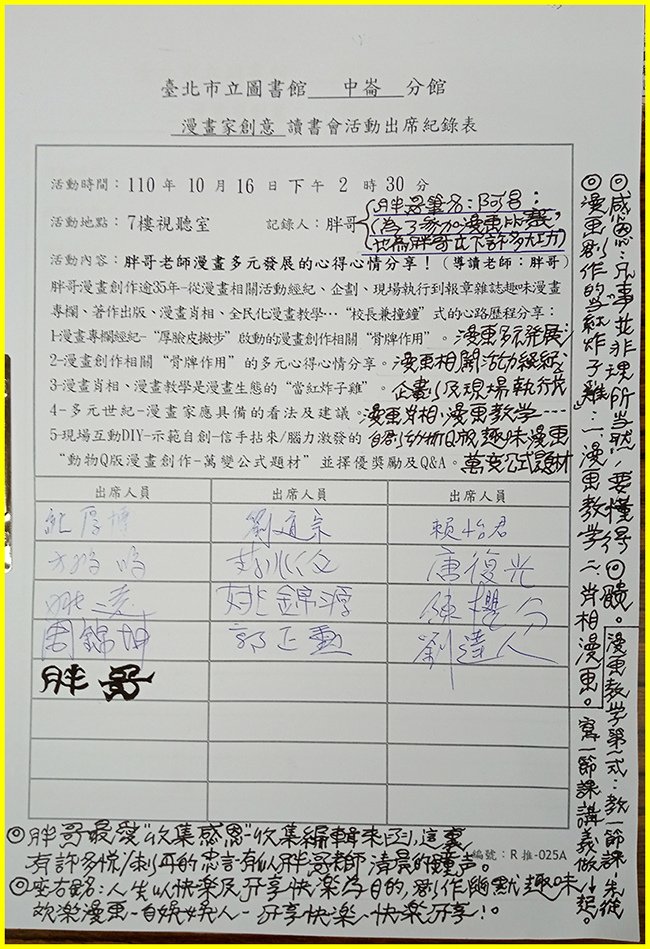 臺北市立圖書館 中崙 分館
漫畫家創意 讀書會活動出席紀錄表
活動時間：110 年 10 月 16 日 下午 2 時 30 分
活動地點：7樓視聽室 記錄人：胖哥
胖哥筆名：阿呂：
為了參加漫画比賽，
活動內容：胖哥老師漫畫多元發展的心得心情分享！（導讀老師：胖哥）
胖哥漫畫創作逾35年-從漫畫相關活動經紀、企劃、現場執行到報章雜誌趣味漫畫
專欄、著作出版、漫畫肖相、全民化漫畫教學…“校長兼撞鐘”式的心路歷程分享：
1-漫畫專欄經紀-“厚臉皮撇步”啟動的漫畫創作相關“骨牌作用”。漫画多元發展；
2-漫畫創作相關“骨牌作用”的多元心得心情分享。漫画相關活動經紀；
3-漫畫肖相、漫畫教學是漫畫生態的“當紅炸子雞”。企劃以及現場執行；
4-多元世紀-漫畫家應具備的看法及建議。漫画肖相、漫画教学……
5-現場互動DIY-示範自創-信手拈來/腦力激發的 Q版趣味漫画
“動物Q版漫畫創作-萬變公式題材”並擇優獎勵及Q&A。萬变公式題材
出席人員 出席人員 出席人員
劉道宗 賴怡君
唐復光
姚錦源
周錦坤 郭正勳 劉達人
胖哥
◎胖哥最愛“收集感恩”收集編輯來函，這裏
有許多 的忠言有似胖哥老師清晨的鐘声。
編號：R 推-025A
◎座右銘：人生以快樂及分享快樂為目的，創作幽默趣味
欢樂漫画-自娛娛人-分享快樂、快樂分享！。
◎感恩：凡事並非理所当然，要懂得回饋。
漫画教学第一式：教一節課-先從
◎漫画創作的当紅炸子雞：一、漫画教学 二、肖相漫画。
寫一節課講義做起。